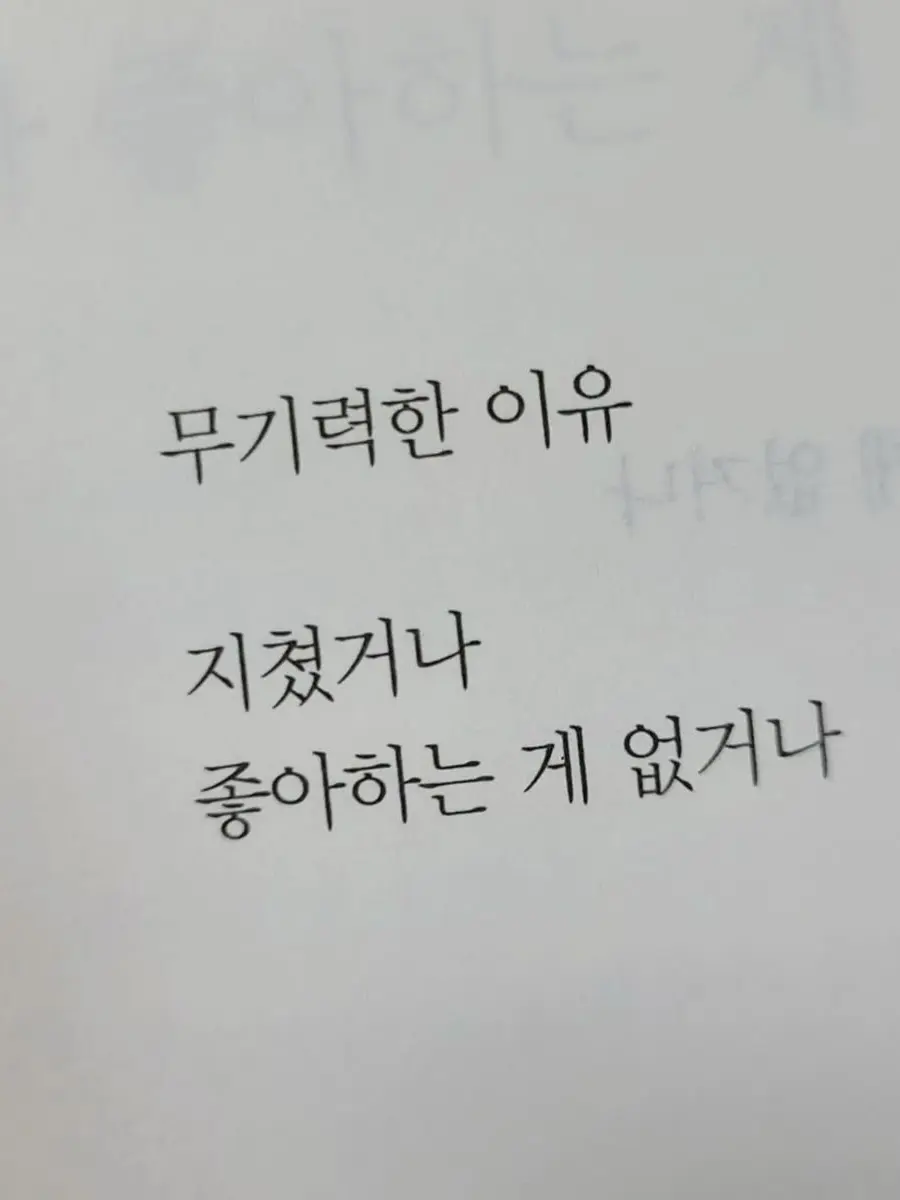 무기력한 이유
지쳤거나
좋아하는 게 없거나